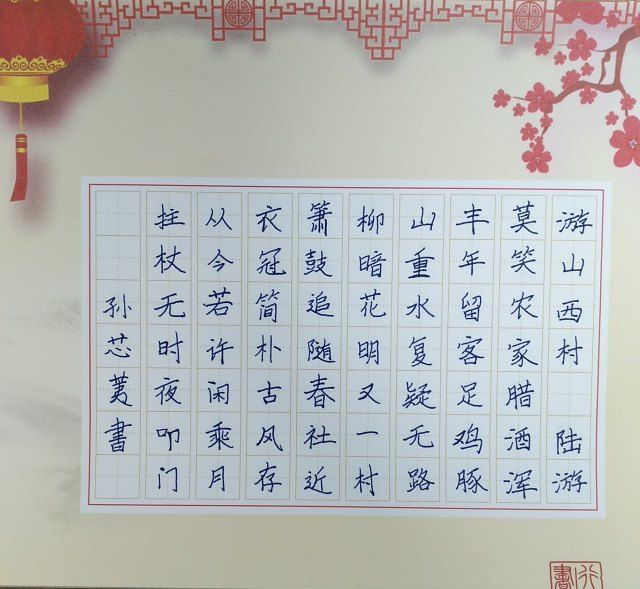 游山西村 陆游
莫笑农家腊酒浑
丰年留客足鸡豚
山重水复疑无路
柳暗花明又一村
箫鼓追随春社近
衣冠简朴古风存
从今若许闲乘月
拄杖无时夜叩门
孙芯荑書